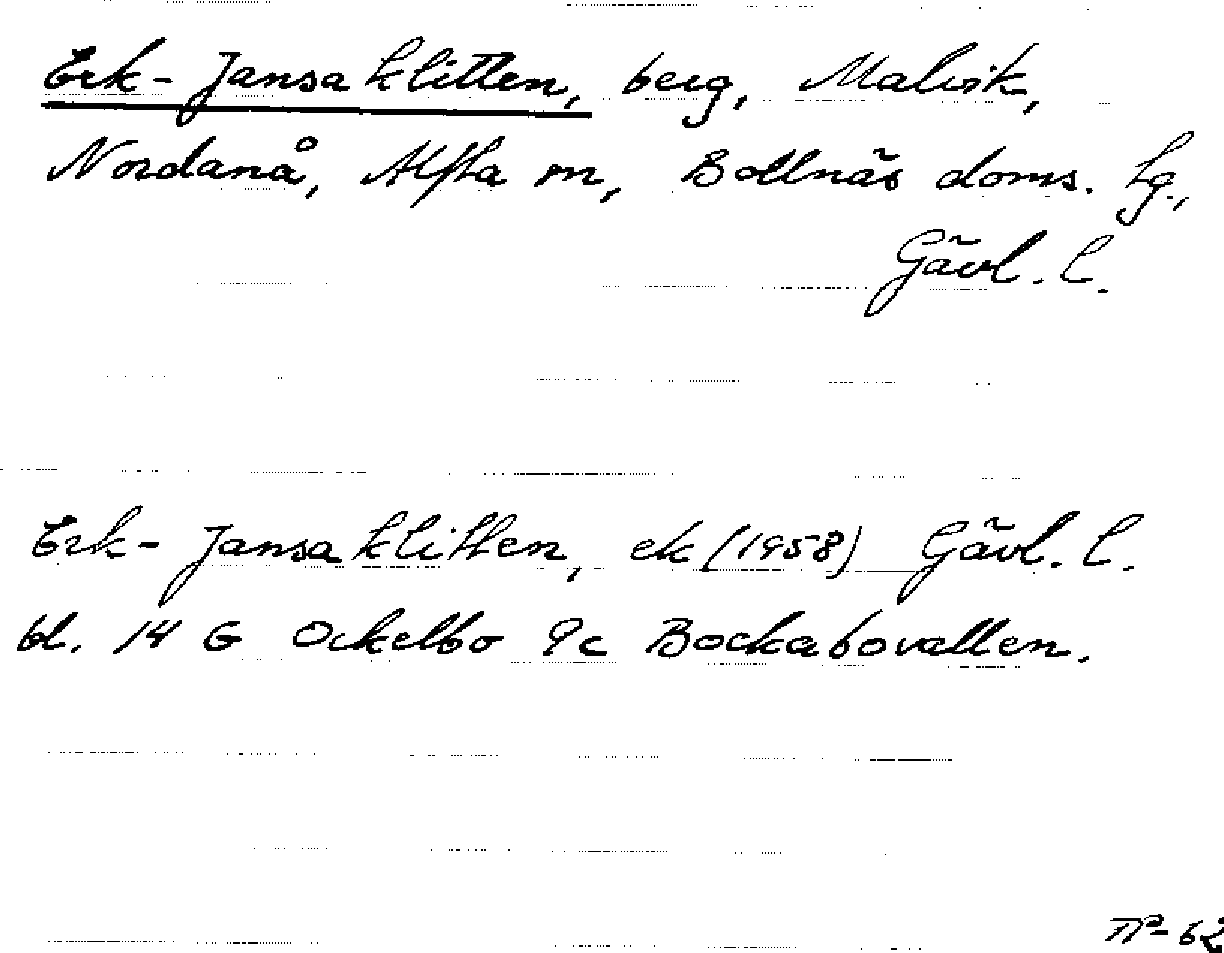 Erk-Jansaklitten, berg, Malvik,
Nordanå, Alfta sn, Bollnäs doms. hg.,
Gävl. l.
Erk-Jansaklitten, ek (1958) Gävl. l.
bl. 14 G Ockelbo 9c Bockabovallen.